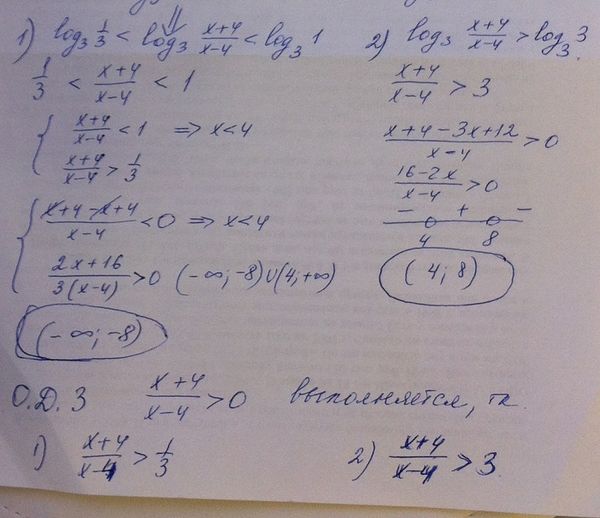 1) log₃ 1/3 < log₃ (x+4)/(x-4) < log₃ 1
1/3 < (x+4)/(x-4) < 1
{ (x+4)/(x-4) < 1 ⇒ x<4
(x+4)/(x-4) > 1/3
{ (x+4-x+4)/(x-4) < 0 ⇒ x<4
(2x+16)/(3(x-4)) > 0 (-∞;-8)∪(4;+∞)
(-∞;-8)
2) log₃ (x+4)/(x-4) > log₃ 3
(x+4)/(x-4) > 3
(x+4-3x+12)/(x-4) > 0
(16-2x)/(x-4) > 0
- + -
4 8
(4;8)
О.Д.З (x+4)/(x-4) > 0 выполняется, тк
1) (x+4)/(x-4) > 1/3
2) (x+4)/(x-4) > 3